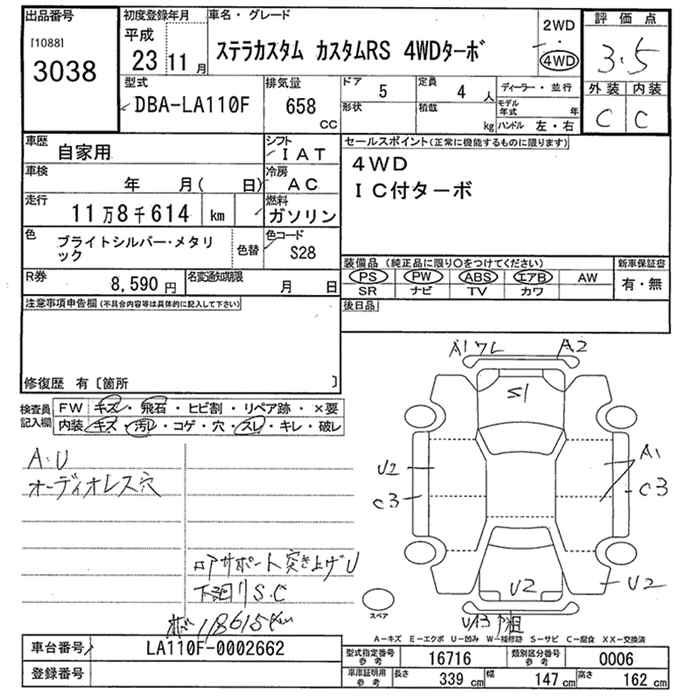 出品番号
[1088]
3038
初度登録年月
平成
23 11 月
車名・グレード
ステラカスタム カスタムRS 4WDターボ
2WD
4WD
評価点
3.5
外装 内装
C C
型式
DBA-LA110F
排気量
658
cc
ドア
5
形状
定員
4 人
積載
kg
ディーラー・並行
モデル年式 年
ハンドル 左・右
車歴
自家用
シフト
IAT
車検
年 月( 日)
冷房
AC
走行
11万8千614 km
燃料
ガソリン
色
ブライトシルバー・メタリ
ック
色替
色コード
S28
R券
8,590 円
名変通知期限
月 日
セールスポイント(正常に機能するものに限ります)
4WD
IC付ターボ
装備品 (純正品に限り○をつけてください)
PS PW ABS エアB AW
SR ナビ TV カワ
新車保証書
有・無
後日品
注意事項申告欄(不具合内容等は具体的に記入して下さい)
修復歴 有〔箇所 〕
検査員
記入欄
FW キズ・飛石・ヒビ割・リペア跡・×要
内装 キズ・汚レ・コゲ・穴・スレ・キレ・破レ
A・U
オーディオレス穴
ロアサポート突き上げU
下廻りS.C
118615km
A1 ワレ A2
S1
U2
C3
A1
C3
U2
U2
スペア
A-キズ E-エクボ U-凹み W-補修跡 S-サビ C-腐食 XX-交換済
車台番号
LA110F-0002662
登録番号
型式指定番号
参考
16716
類別区分番号
参考
0006
車庫証明用
参考
長さ 339 cm 幅 147 cm 高さ 162 cm